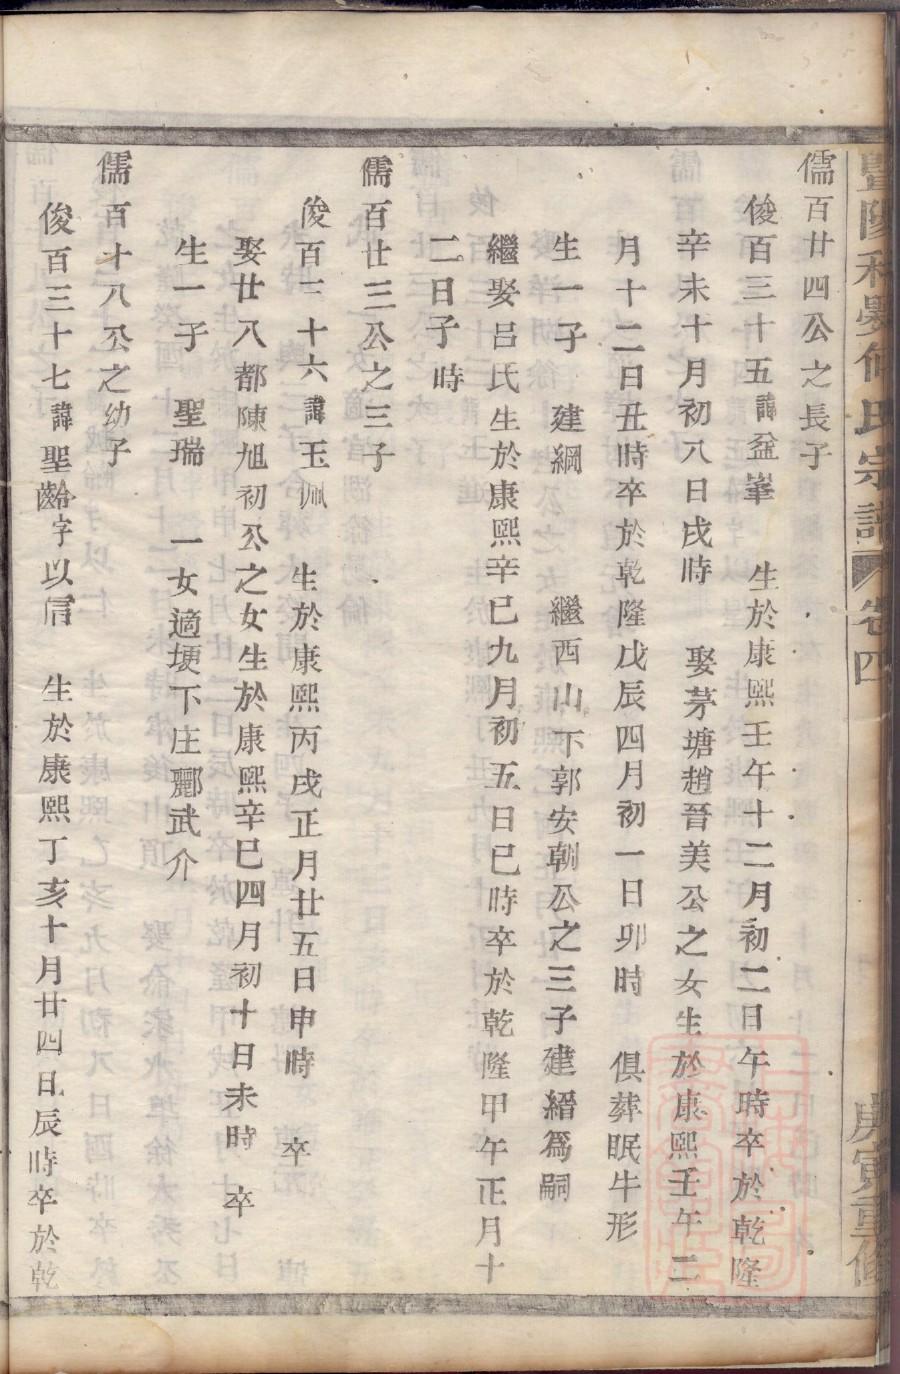 儒百廿四公之長子
俊百三十五諱益峯 生於康熙壬午十二月初二日午時卒於乾隆
辛未十月初八日戌時 娶茅塘趙晉美公之女生於康熙壬午二
月十二日丑時卒於乾隆戊辰四月初一日卯時 俱葬眠牛形
生一子 建綱 繼西山下郭安朝公之三子建縉爲嗣
繼娶呂氏生於康熙辛巳九月初五日巳時卒於乾隆甲午正月十
二日子時
儒百廿三公之三子
俊百三十六諱玉珮 生於康熙丙戌正月廿五日申時 卒
娶廿八都陳旭初公之女生於康熙辛巳四月初十日未時 卒
生一子 聖瑞 一女適埂下庄酈武介
儒百十八公之幼子
俊百三十七諱聖齡字以信 生於康熙丁亥十月廿四日辰時卒於乾
何氏宗譜 卷四 庚寅重修